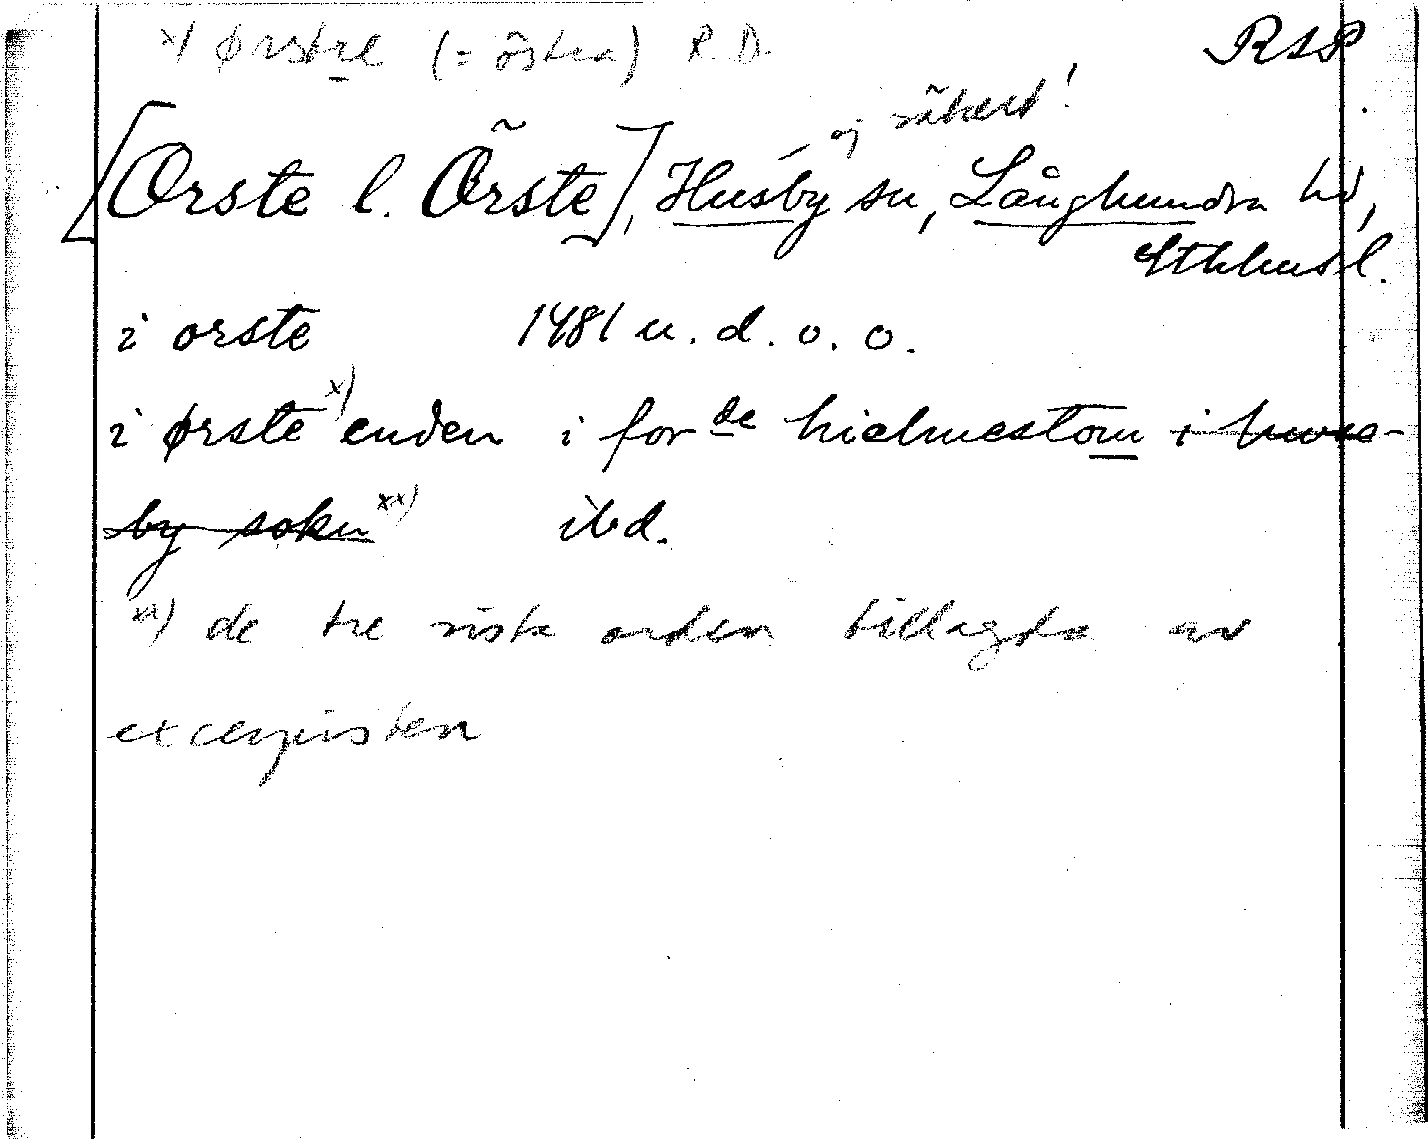 x) ørstre (= östra) R.D.
RAP
– ej säkert!
[Orste l. Örste], Husby sn, Långhundra hd,
Sthlms l.
i orste 1481 u. d. o. o.
i ørste x) enden i forde hielmestom i hwse-
by sokn xx) ibd.
xx) de tre sista orden tillagda av
excerpisten